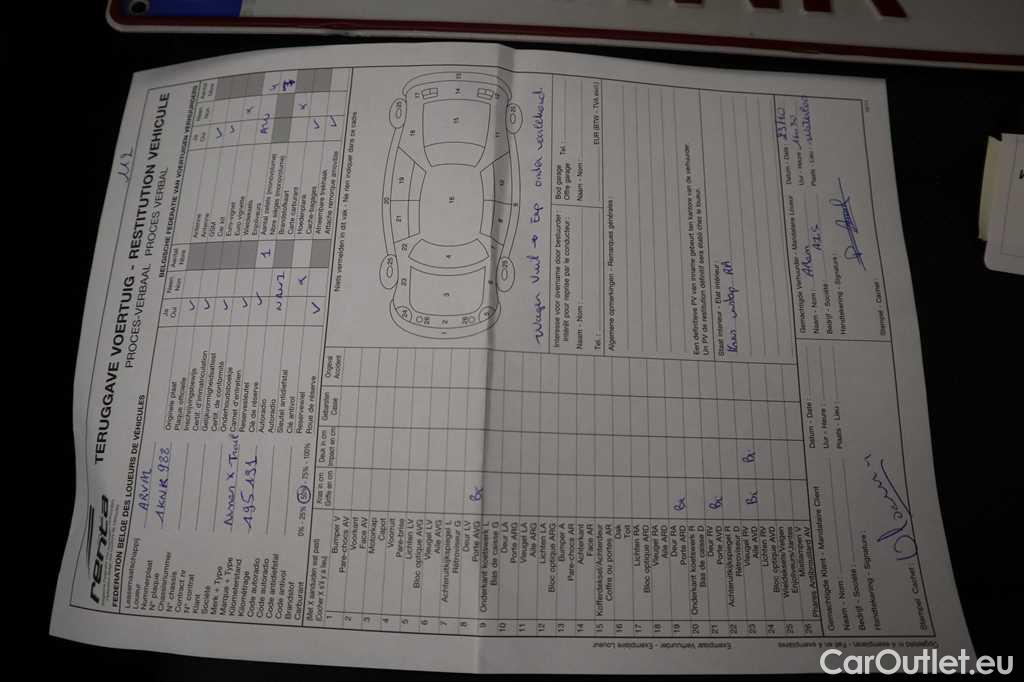 renta
FEDERATION BELGE DES LOUEURS DE VÉHICULES
TERUGGAVE VOERTUIG - RESTITUTION VEHICULE
PROCES-VERBAAL PROCES VERBAL
BELGISCHE FEDERATIE VAN VOERTUIGEN VERHUURDERS
Leasemaatschappij
Loueur
ARVAL
Nummerplaat
N° plaque
1KNR 988
Chassisnummer
N° châssis
Contract nr
N° contrat
Klant
Société
Merk + Type
Marque + Type
Nissan X-Trail
Kilometerstand
Kilométrage
195191
Code autoradio
Code autoradio
Code antidiefstal
Code antivol
Brandstof
Carburant
0% - 25% - 50% - 75% - 100%
Originele plaat
Plaque officielle
Inschrijvingsbewijs
Certif. d'immatriculation
Gelijkvormigheidsattest
Certif. de conformité
Onderhoudsboekje
Carnet d'entretien
Reservesleutel
Clé de réserve
Autoradio
Autoradio
Sleutel antidiefstal
Clé antivol
Reservewiel
Roue de réserve
Ja
Oui
Neen
Non
Aantal
Nbre
1
Antenne
Antenne
GSM
Car kit
Euro-vignet
Euro vignette
Wieldeksels
Enjoliveurs
Aantal zetels (monovolume)
Nbre sièges (monovolume)
Brandstofkaart
Carte carburant
Hoedenplank
Cache-bagages
Afneembare trekhaak
Attache remorque amovible
Ja
Oui
Neen
Non
Aantal
Nbre
Niets vermelden in dit vak - Ne rien indiquer dans ce cadre
Met X aanduiden wat past
Kras in cm
Griffe en cm
Deuk in cm
Impact en cm
Gebarsten
Cassé
Ongeval
Accident
1 Bumper V
Pare-chocs AV
2 Voorkant
Face AV
3 Motorkap
Capot
4 Voorruit
Pare-brise
5 Lichten LV
Bloc optique AVG
6 Vleugel LV
Aile AVG
7 Achteruitkijkspiegel L
Rétroviseur G
8 Deur LV
Porte AVG
9 Onderkant koetswerk L
Bas de caisse G
10 Deur LA
Porte ARG
11 Vleugel LA
Aile ARG
12 Lichten LA
Bloc optique ARG
13 Bumper A
Pare-chocs AR
14 Achterkant
Face AR
15 Kofferdeksel/Achterdeur
Coffre ou portes AR
16 Dak
Toit
17 Lichten RA
Bloc optique ARD
18 Vleugel RA
Aile ARD
19 Deur RA
Porte ARD
20 Onderkant koetswerk R
Bas de caisse R
21 Deur RV
Porte AVD
22 Achteruitkijkspiegel R
Rétroviseur D
23 Vleugel RV
Aile AVD
24 Lichten RV
Bloc optique AVD
25 Wieldeksels/Velgen
Enjoliveurs/Jantes
26 Mistlampen V
Phares Antibrouillard AV
Interesse voor overname door bestuurder
Intérêt pour reprise par le conducteur :
Naam - Nom :
Tel. :
Bod garage
Offre garage
Tel. :
EUR (BTW - TVA excl.)
Algemene opmerkingen - Remarques générales :
Een definitieve PV van inname gebeurt ten kantore van de verhuurder.
Un PV de restitution définitif sera établi chez le loueur.
Staat interieur - Etat intérieur :
Gemachtigde Klant - Mandataire Client
Naam - Nom :
Bedrijf - Société :
Handtekening - Signature :
Stempel - Cachet :
Datum - Date :
Uur - Heure :
Plaats - Lieu :
Gemachtigde Verhuurder - Mandataire Loueur
Naam - Nom :
Bedrijf - Société :
AIS
Handtekening - Signature :
Stempel - Cachet :
Datum - Date : 23/10
Uur - Heure :
Plaats - Lieu : Waterloo
Exemplaar Verhuurder - Exemplaire Loueur
Opgesteld in 4 exemplaren - Fait en 4 exemplaires
CarOutlet.eu